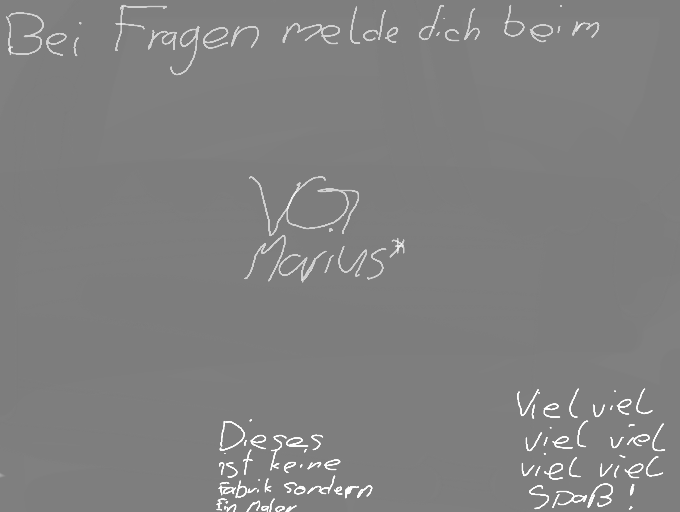 Bei Fragen melde dich beim
Marius*
Viel viel
viel viel
viel viel
Spaß!
Dieses
ist keine
Fabrik sondern
Ein Maler